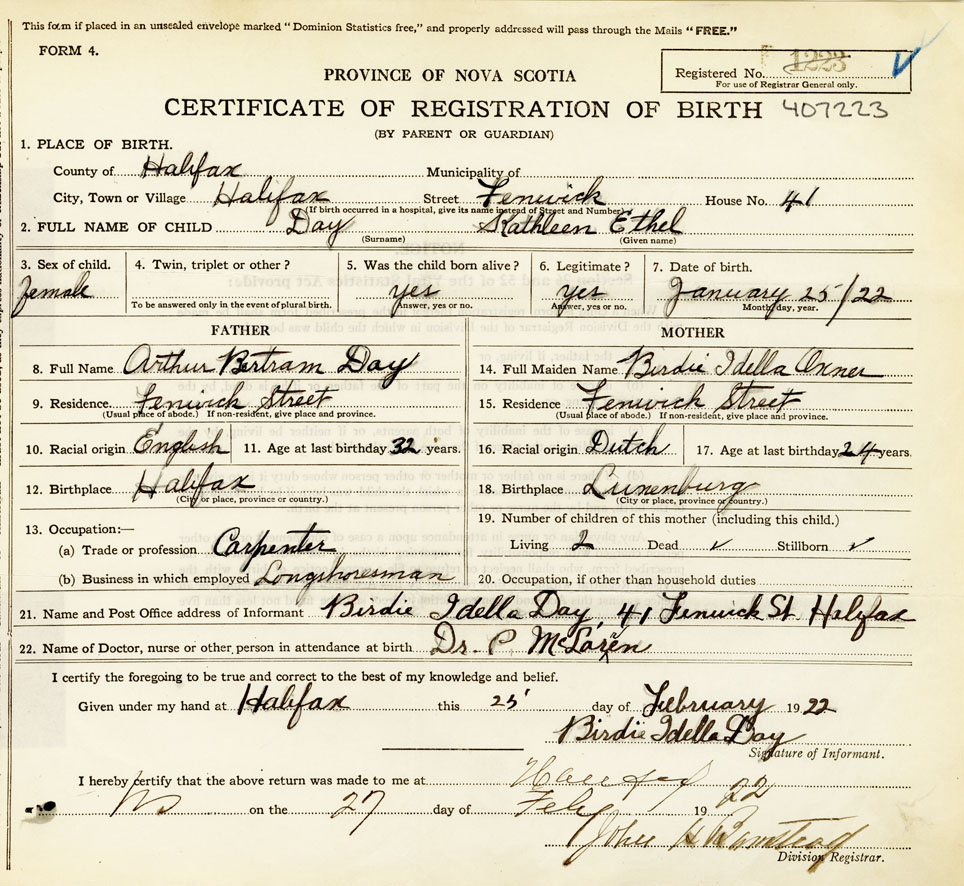 This form if placed in an unsealed envelope marked "Dominion Statistics free," and properly addressed will pass through the Mails "FREE."
FORM 4.
Registered No. 1223
For use of Registrar General only.
PROVINCE OF NOVA SCOTIA
CERTIFICATE OF REGISTRATION OF BIRTH 407223
(BY PARENT OR GUARDIAN)
1. PLACE OF BIRTH.
County of Halifax Municipality of
City, Town or Village Halifax Street Fenwick House No. 41
(If birth occurred in a hospital, give its name instead of Street and Number)
2. FULL NAME OF CHILD Day Kathleen Ethel
(Surname) (Given name)
3. Sex of child. 4. Twin, triplet or other? 5. Was the child born alive? 6. Legitimate? 7. Date of birth.
female yes yes January 25/22
To be answered only in the event of plural birth. Answer, yes or no. Answer, yes or no. Month, day, year.
FATHER MOTHER
8. Full Name Arthur Bertram Day 14. Full Maiden Name Birdie Idella Oxner
9. Residence. Fenwick Street 15. Residence Fenwick Street
(Usual place of abode.) If non-resident, give place and province. (Usual place of abode.) If non-resident, give place and province.
10. Racial origin English 11. Age at last birthday 32 years. 16. Racial origin Dutch 17. Age at last birthday 24 years.
12. Birthplace Halifax 18. Birthplace Lunenburg
(City or place, province or country.) (City or place, province or country.)
13. Occupation:— 19. Number of children of this mother (including this child.)
(a) Trade or profession Carpenter Living 2 Dead ✓ Stillborn ✓
(b) Business in which employed Longshoresman 20. Occupation, if other than household duties
21. Name and Post Office address of Informant Birdie Idella Day, 41 Fenwick St Halifax
22. Name of Doctor, nurse or other person in attendance at birth Dr. P McLaren
I certify the foregoing to be true and correct to the best of my knowledge and belief.
Given under my hand at Halifax this 25' day of February 1922
Birdie Idella Day
Signature of Informant.
I hereby certify that the above return was made to me at Halifax
NS on the 27 day of Feby 1922
John H
Division Registrar.